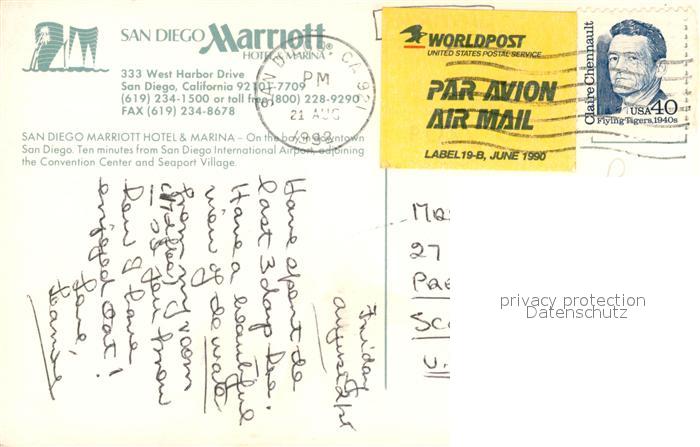 SAN DIEGO Marriott®
HOTEL & MARINA
333 West Harbor Drive
San Diego, California 92101-7709
(619) 234-1500 or toll free (800) 228-9290
FAX (619) 234-8678
SAN DIEGO MARRIOTT HOTEL & MARINA – On the bay in downtown
San Diego. Ten minutes from San Diego International Airport, adjoining
the Convention Center and Seaport Village.
SAN DIEGO CA
PM
21 AUG
1992
WORLDPOST
UNITED STATES POSTAL SERVICE
PAR AVION
AIR MAIL
LABEL 19-B, JUNE 1990
Claire Chennault
USA 40
Flying Tigers, 1940s
Friday
August 21st
Have spent the
last 3 days here.
Have a beautiful
view of the water
from my room
as you know
Don & I have
enjoyed that!
Love
27
privacy protection
Datenschutz